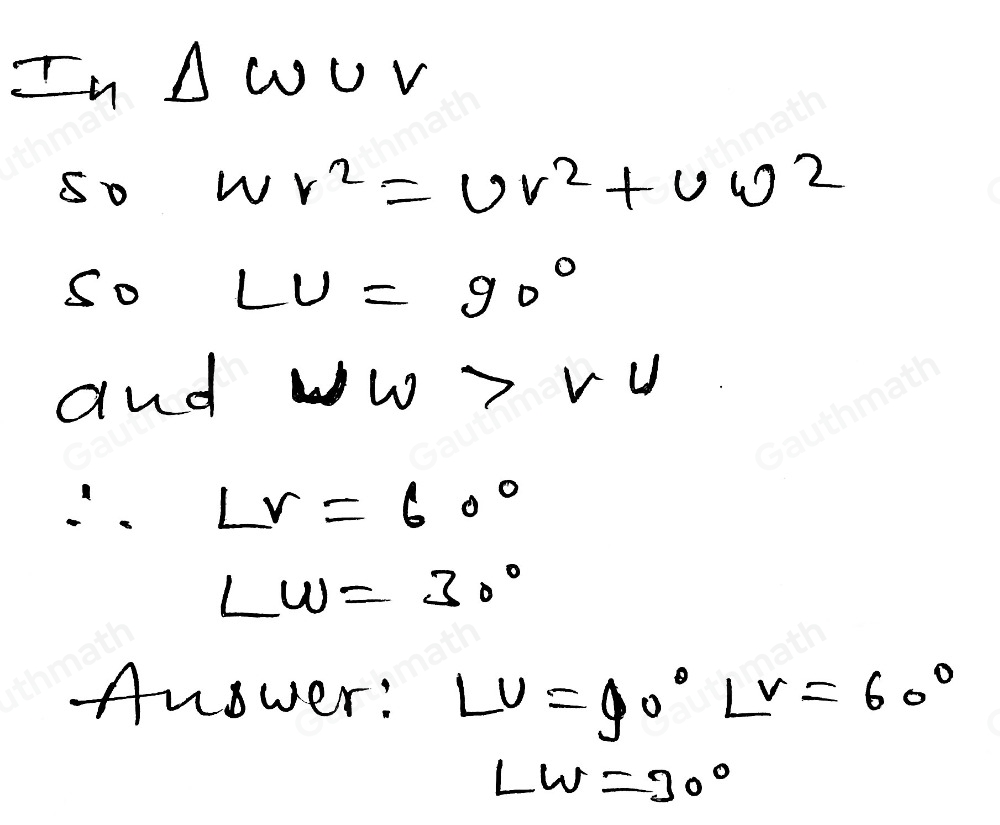 In Δ W U V
so WV² = UV² + UW²
so ∠U = 90°
and UW > VU
∴ ∠V = 60°
∠W = 30°
Answer: ∠U = 90° ∠V = 60°
∠W = 30°
Gauthmath